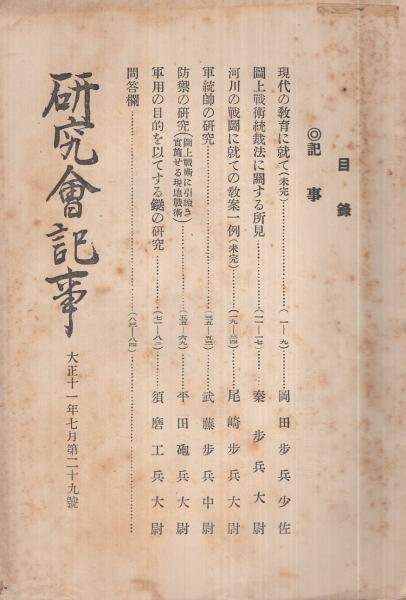 目錄
◎記事
現代の敎育に就て(未完)………(一—九)…岡田步兵少佐
圖上戰術統裁法に關する所見………(一一—一七)…秦步兵大尉
河川の戰鬪に就ての敎案一例(未完)………(一九—三四)…尾崎步兵大尉
軍統帥の硏究………(三五—五三)…武藤步兵中尉
防禦の硏究(圖上戰術に引續き實施せる現地戰術)………(五五—六九)…平田砲兵大尉
軍用の目的を以てする鏝の硏究………(七一—八二)…須磨工兵大尉
問答欄………(八三—八四)………
硏究會記事
大正十一年七月第二十九號